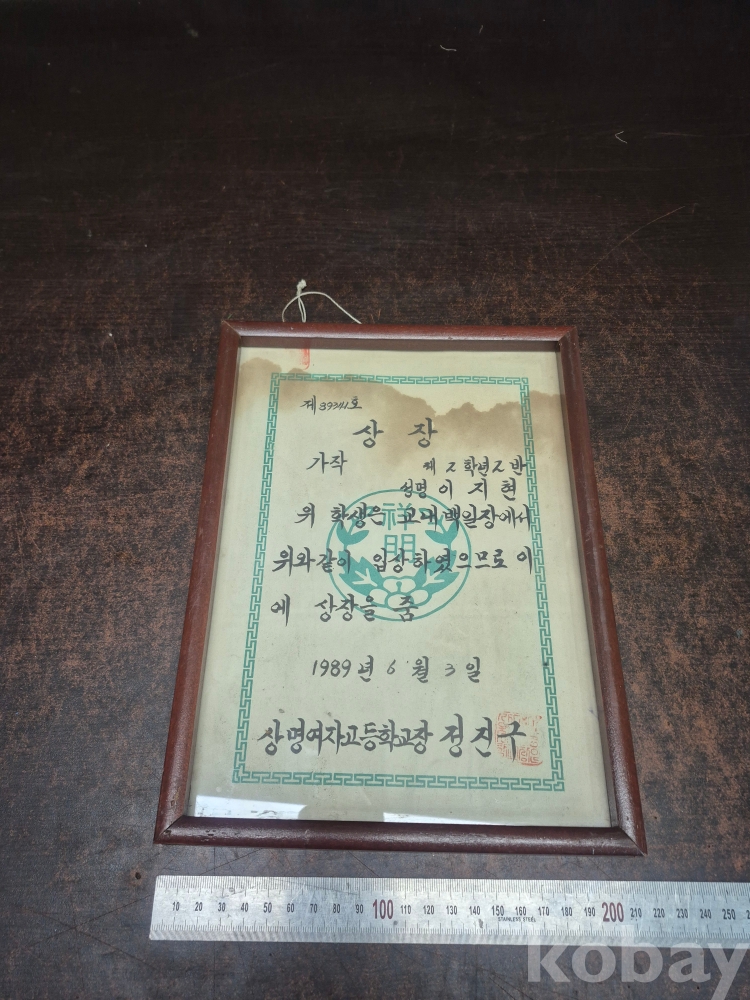 제39341호
상 장
가작 제2학년2반
성명 이지현
위 학생은 교내백일장에서
위와같이 입상하였으므로 이
에 상장을 줌
祥
明
1989년 6월 3일
상명여자고등학교장 정진구
10 20 30 40 50 60 70 80 90 100 110 120 130 140 150 160 170 180 190 200 210 220 230 240 250
STAINLESS STEEL
kobay